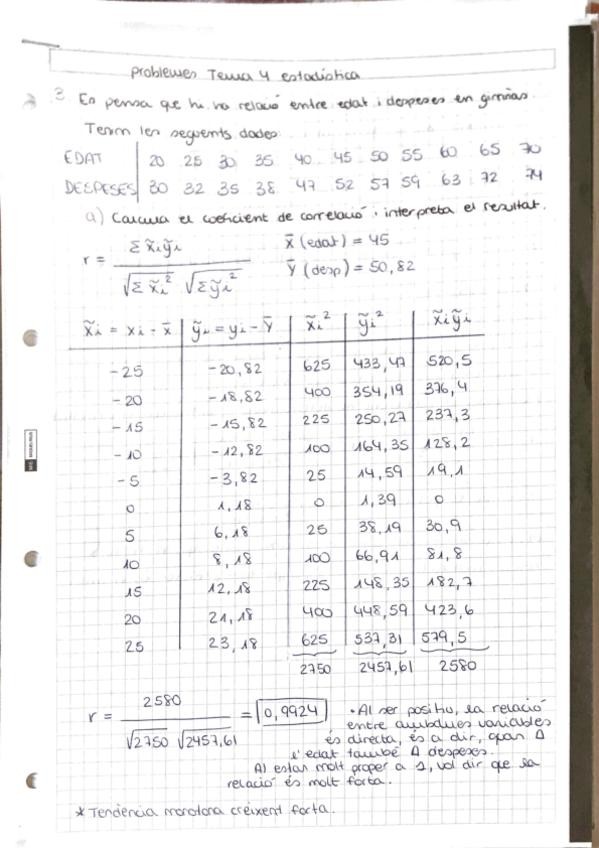 problemes Tema 4 estadística
3 Es pensa que hi ha relació entre edat i despeses en gimnàs.
Tenim les següents dades:
EDAT 20 25 30 35 40 45 50 55 60 65 70
DESPESES 30 32 35 38 47 52 57 59 63 72 74
a) Calcula el coeficient de correlació i interpreta el resultat.
r = Σ x̃i ỹi / √Σ x̃i² √Σ ỹi²
x̄ (edat) = 45
ȳ (desp) = 50,82
x̃i = xi - x̄ ỹi = yi - ȳ x̃i² ỹi² x̃i ỹi
-25 -20,82 625 433,47 520,5
-20 -18,82 400 354,19 376,4
-15 -15,82 225 250,27 237,3
-10 -12,82 100 164,35 128,2
-5 -3,82 25 14,59 19,1
0 1,18 0 1,39 0
5 6,18 25 38,19 30,9
10 8,18 100 66,91 81,8
15 12,18 225 148,35 182,7
20 21,18 400 448,59 423,6
25 23,18 625 537,31 579,5
2750 2457,61 2580
r = 2580 / √2750 √2457,61 = 0,9924
• Al ser positiu, la relació
entre ambdues variables
és directa, és a dir, quan Δ
l'edat també Δ despeses.
Al estar molt proper a 1, vol dir que la
relació és molt forta.
* Tendència monotona creixent forta.